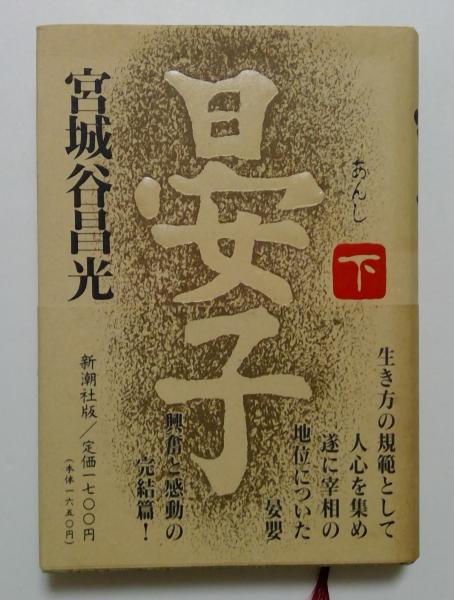 晏子
あんし
下
宮城谷昌光
生き方の規範として
人心を集め
遂に宰相の
地位についた
晏嬰
興奮と感動の
完結篇!
新潮社版/定価一七〇〇円
(本体一六五〇円)